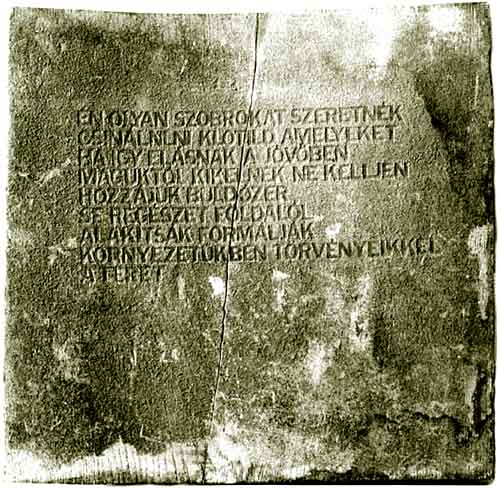 ÉN OLYAN SZOBROKAT SZERETNÉK
CSINÁLNI KLOTILD AMELYEKET
HA ÍGY ELÁSNAK A JÖVŐBEN
MAGUKTÓL KIKELNEK NE KELLJEN
HOZZÁJUK BULDÓZER
SE RÉGÉSZET FÖLDALÓL
ALAKÍTSÁK FORMÁLJÁK
KÖRNYEZETÜKBEN TÖRVÉNYEIKKEL
A TERET